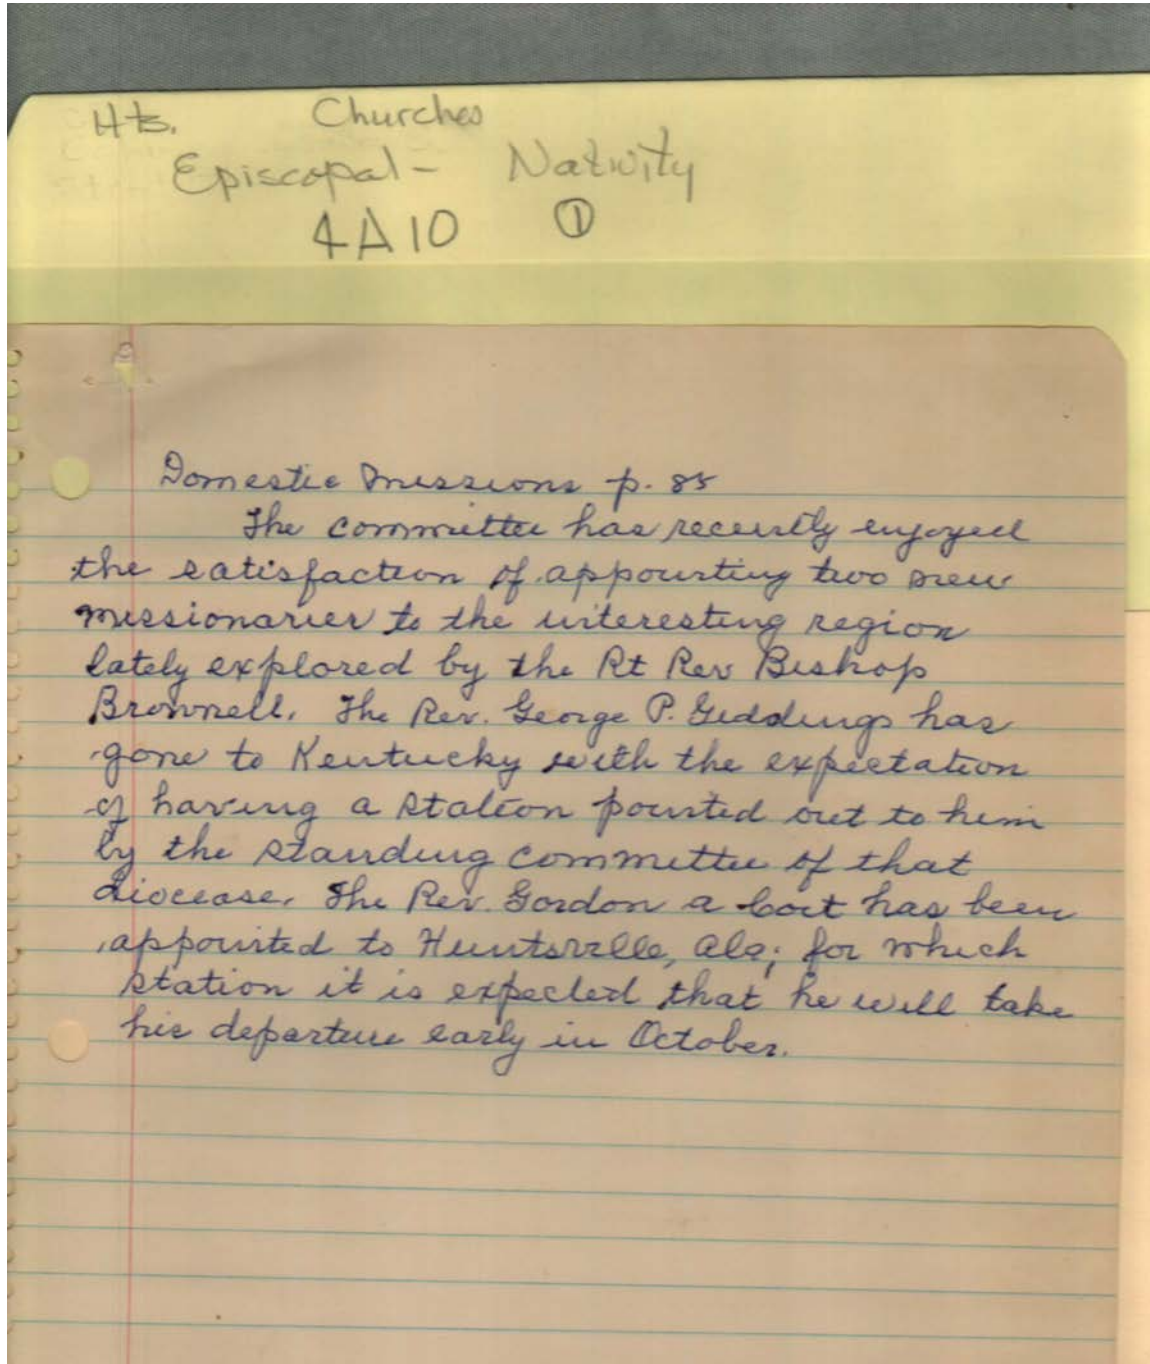 Hts. Churches
Episcopal - Nativity
4A10 ①
Domestic Missions p. 85
The committee has recently enjoyed
the satisfaction of appointing two new
missionaries to the interesting region
lately explored by the Rt Rev Bishop
Brownell. The Rev. George P. Giddings has
gone to Kentucky with the expectation
of having a station pointed out to him
by the standing committee of that
diocease. The Rev. Gordon a Coit has been
appointed to Huntsville, Ala; for which
station it is expected that he will take
his departure early in October.